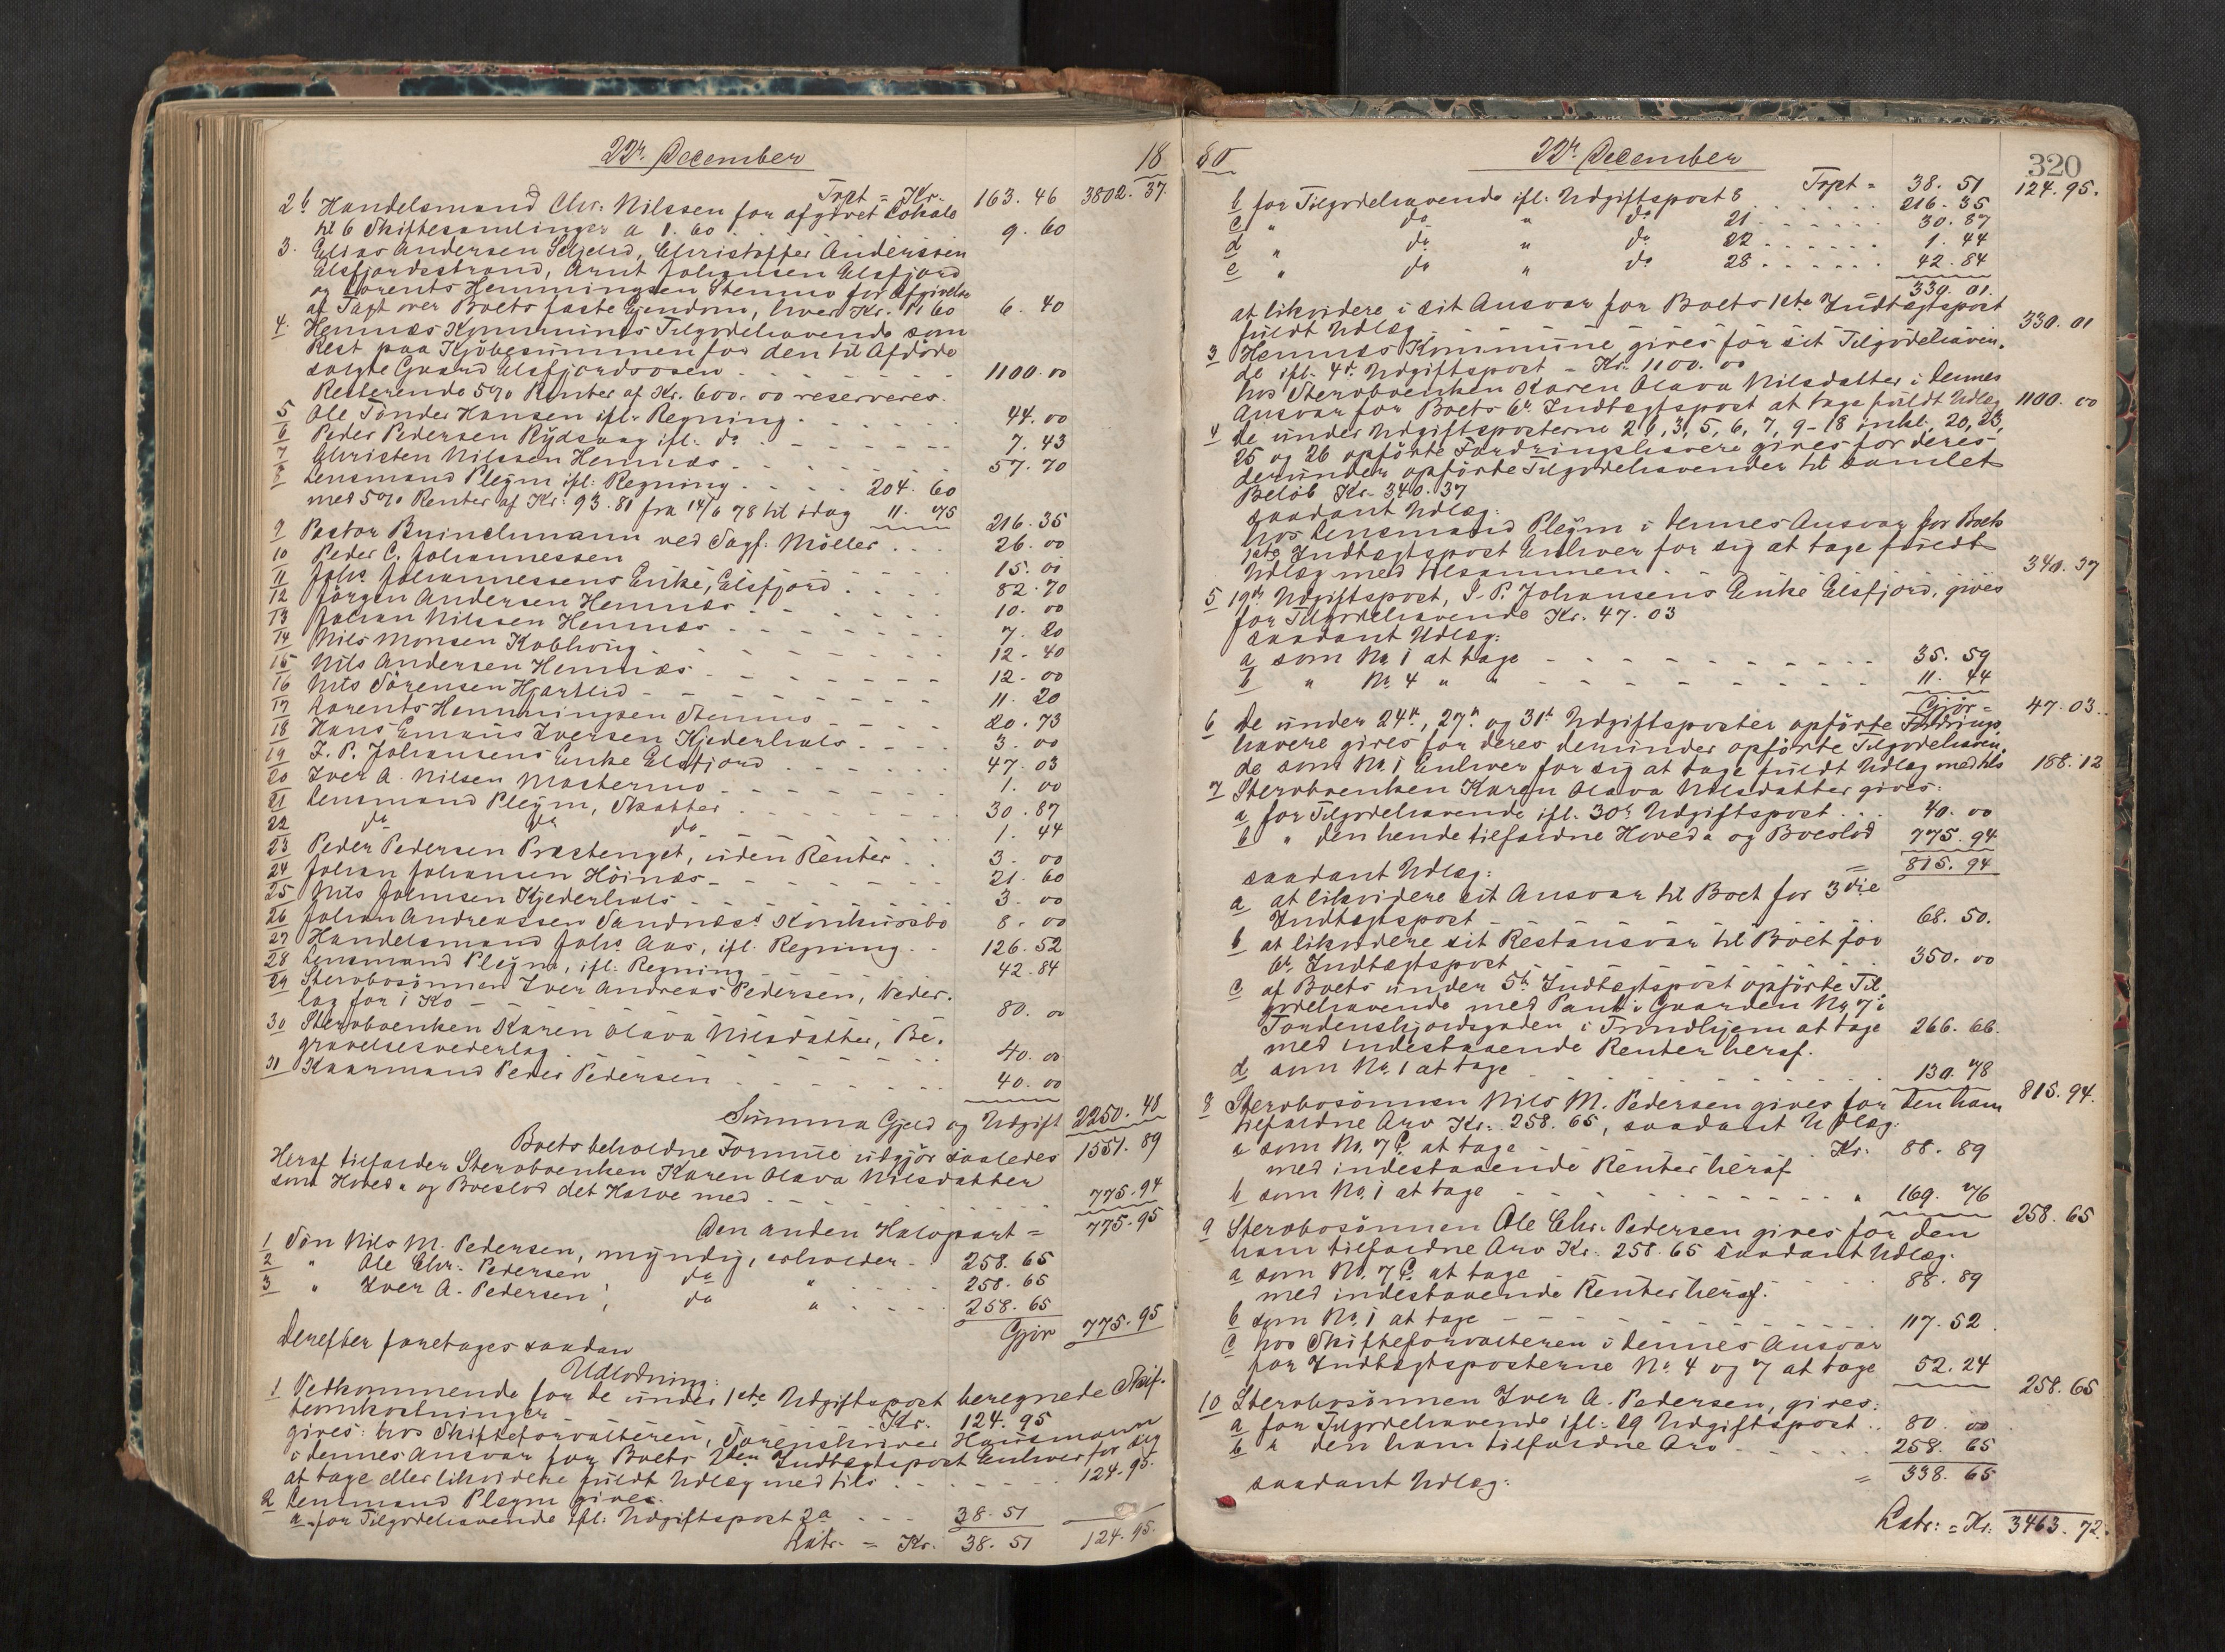 22de December
18
Trpt = Kr. 163. 46 3802. 37.
2b Handelsmand Chr. Nilssen for afgivet Lokale
til 6 Skiftesamlinger a 1. 60 . . 9. 60
3. Elias Andersen Seljelid, Christoffer Anderssen
Elsfjordsstrand, Arnt Johansen Elsfjord
og Lorents Hemmingsen Stenmo for Afgivelse
af Taxt over Boets faste Ejendom, hver Kr. 1. 60 6. 40
4. Hemnæs Kommunes Tilgodehavende som
Rest paa Kjöbesummen for den til Afdöde
solgte Gaard Elsfjordsosen 1100. 00
Resterende 5% Renter af Kr. 600. 00 reserveres.
5 Ole Tönder Hansen ifl. Regning 44. 00
6 Peder Pedersen Rydsaag ifl. do 7. 43
7 Christen Nilssen Hemnæs 57. 70
8 Lensmand Pleym ifl. Regning 204. 60
med 5% Renter af Kr. 93. 81 fra 14/6 78 til idag 11. 75
216. 35
9 Pastor Buinchmann ved Sagf. Möller 26. 00
10 Peder C. Johannessen 15. 00
11 Johs Johannessens Enke, Elsfjord 82. 70
12 Jörgen Andersen Hemnæs 10. 00
13 Johan Nilssen Hemnæs 7. 20
14 Nils Monsen Kobhoug 12. 40
15 Nils Andersen Hemnæs 12. 00
16 Nils Sörensen Hjartlid 11. 20
17 Lorents Hemmingsen Stenmo 20. 73
18 Hans Emaus Iversen Kjederhals 3. 00
19 I. P. Johansens Enke Elsfjord 47. 03
20 Iver A. Nilsen Mostermo 1. 00
21 Lensmand Pleym, Skatter 30. 87
22 do do do 1. 44
23 Peder Pedersen Præstenget, uden Renter 3. 00
24 Johan Johansen Höinæs 21. 60
25 Nils Johnsen Kjederhals 3. 00
26 Johan Andreassen Sandnæss Konkursbo 8. 00
27 Handelsmand Johs Aas, ifl. Regning 126. 52
28 Lensmand Pleym, ifl. Regning 42. 84
29 Stervbosönnen Iver Andreas Pedersen, Veder-
lag for 1 Ko 80. 00
30 Stervboenken Karen Olava Nilsdatter, Be-
gravelsesvederlag 40. 00
31 Kaarmand Peder Pedersen 40. 00
Summa Gjeld og Udgift 2250. 48
Boets beholdne Formue udgjör saaledes 1551. 89
Heraf tilfalder Stervboenken Karen Olava Nilsdatter
som Hoved- og Boeslod det Halve med 775. 94
Den anden Halvpart = 775. 95
1 Sön Nils M. Pedersen, myndig, erholder 258. 65
2 " Ole Chr. Pedersen do " 258. 65
3 " Iver A. Pedersen, do " 258. 65
Gjör 775. 95
Derefter foretages saadan
Udlodning:
1 Vedkommende for de under 1ste Udgiftspost beregnede Skif-
teomkostninger Kr. 124. 95
gives: hos Skifteforvalteren, Sorenskriver Hausmann
i dennes Ansvar for Boets 2den Indtægtspost Enhver for sig
at tage eller likvidere fuldt Udlæg med tils 124. 95.
2 Lensmand Pleym gives
a for Tilgodehavende ifl. Udgiftspost 2a 38. 51
Latr. = Kr. 38. 51 124. 95.
80
22de December
320
Trpt = 38. 51 124. 95.
b for Tilgodehavende ifl. Udgiftspost 8 216. 35
c " do " do 21 30. 87
d " do " do 22 1. 44
e " do " do 28 42. 84
= 330. 01.
at likvidere i sit Ansvar for Boets 1ste Indtægtspost
fuldt Udlæg 330. 01
3 Hemnæs Kommune gives for sit Tilgodehaven-
de ifl. 4de Udgiftspost - Kr. 1100. 00
hos Stervboenken Karen Olava Nilsdatter i dennes
Ansvar for Boets 6te Indtægtspost at tage fuldt Udlæg 1100. 00
4 De under Udgiftsposterne 2b, 3, 5, 6, 7, 9-18 inkl., 20, 23,
25 og 26 opförte Fordringshavere gives for deres
derunder opförte Tilgodehavender til samlet
Belöb Kr. 340. 37
saadant Udlæg:
hos Lensmand Pleym i dennes Ansvar for Boets
1ste Indtægtspost Enhver for sig at tage fuldt
Udlæg med tilsammen 340. 37
5 19de Udgiftspost, I. P. Johansens Enke Elsfjord, gives
for Tilgodehavende Kr. 47. 03
saadant Udlæg:
a som No 1 at tage 35. 59
b " No 4 " " 11. 44
Gjör = 47. 03.
6 De under 24de, 27de og 31te Udgiftsposter opförte Fordrings-
havere gives for deres derunder opförte Tilgodehaven-
de som No 1 Enhver for sig at tage fuldt Udlæg med tils 188. 12
7 Stervboenken Karen Olava Nilsdatter gives:
a for Tilgodehavende ifl. 30te Udgiftspost 40. 00
b " den hende tilfaldne Hoved- og Boeslod 775. 94
= 815. 94
saadant Udlæg:
a at likvidere sit Ansvar til Boet for 3die
Indtægtspost 68. 50.
b at likvidere sit Restansvar til Boet for
6te Indtægtspost 350. 00
c af Boets under 5te Indtægtspost opförte Til-
godehavende med Pant i Gaarden No 7 i
Tordenskjoldsgaden i Trondhjem at tage 266. 66.
med indestaaende Renter heraf.
d som No 1 at tage 130. 78
815. 94.
8 Stervbosönnen Nils M. Pedersen gives for den ham
tilfaldne Arv Kr. 258. 65, saadant Udlæg:
a som No 7 c at tage Kr. 88. 89
med indestaaende Renter heraf
b som No 1 at tage " 169. 76
258. 65
9 Stervbosönnen Ole Chr. Pedersen gives for den
ham tilfaldne Arv Kr. 258. 65 saadant Udlæg.
a som No 7 c at tage 88. 89
med indestaaende Renter heraf.
b som No 1 at tage 117. 52
c hos Skifteforvalteren i dennes Ansvar
for Indtægtsposterne No 4 og 7 at tage 52. 24
258. 65
10 Stervbosönnen Iver A. Pedersen, gives:
a for Tilgodehavende ifl. 29 Udgiftspost 80. 00
b " den ham tilfaldne Arv 258. 65
= 338. 65
saadant Udlæg:
Latr: = Kr: 3463. 72.